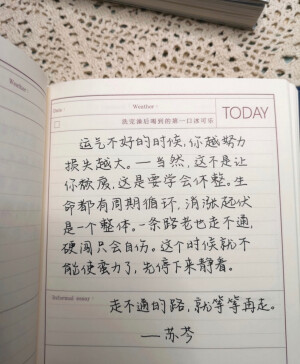 Weather ·
Date ·
Weather ·
TODAY
我宣崩后喝到的第一口冰可乐
运气不好的时候，你越努力
损失越大。一当然，这不是让
你放废，这是要学会休整。生
命都有周期循环，消涨起伏
是一个整体。一条路老也走不通，
硬闯只会自伤。这个时候就不
能使蛮力了，先停下来静看。
走不通的路，就等等再走。
——苏芩